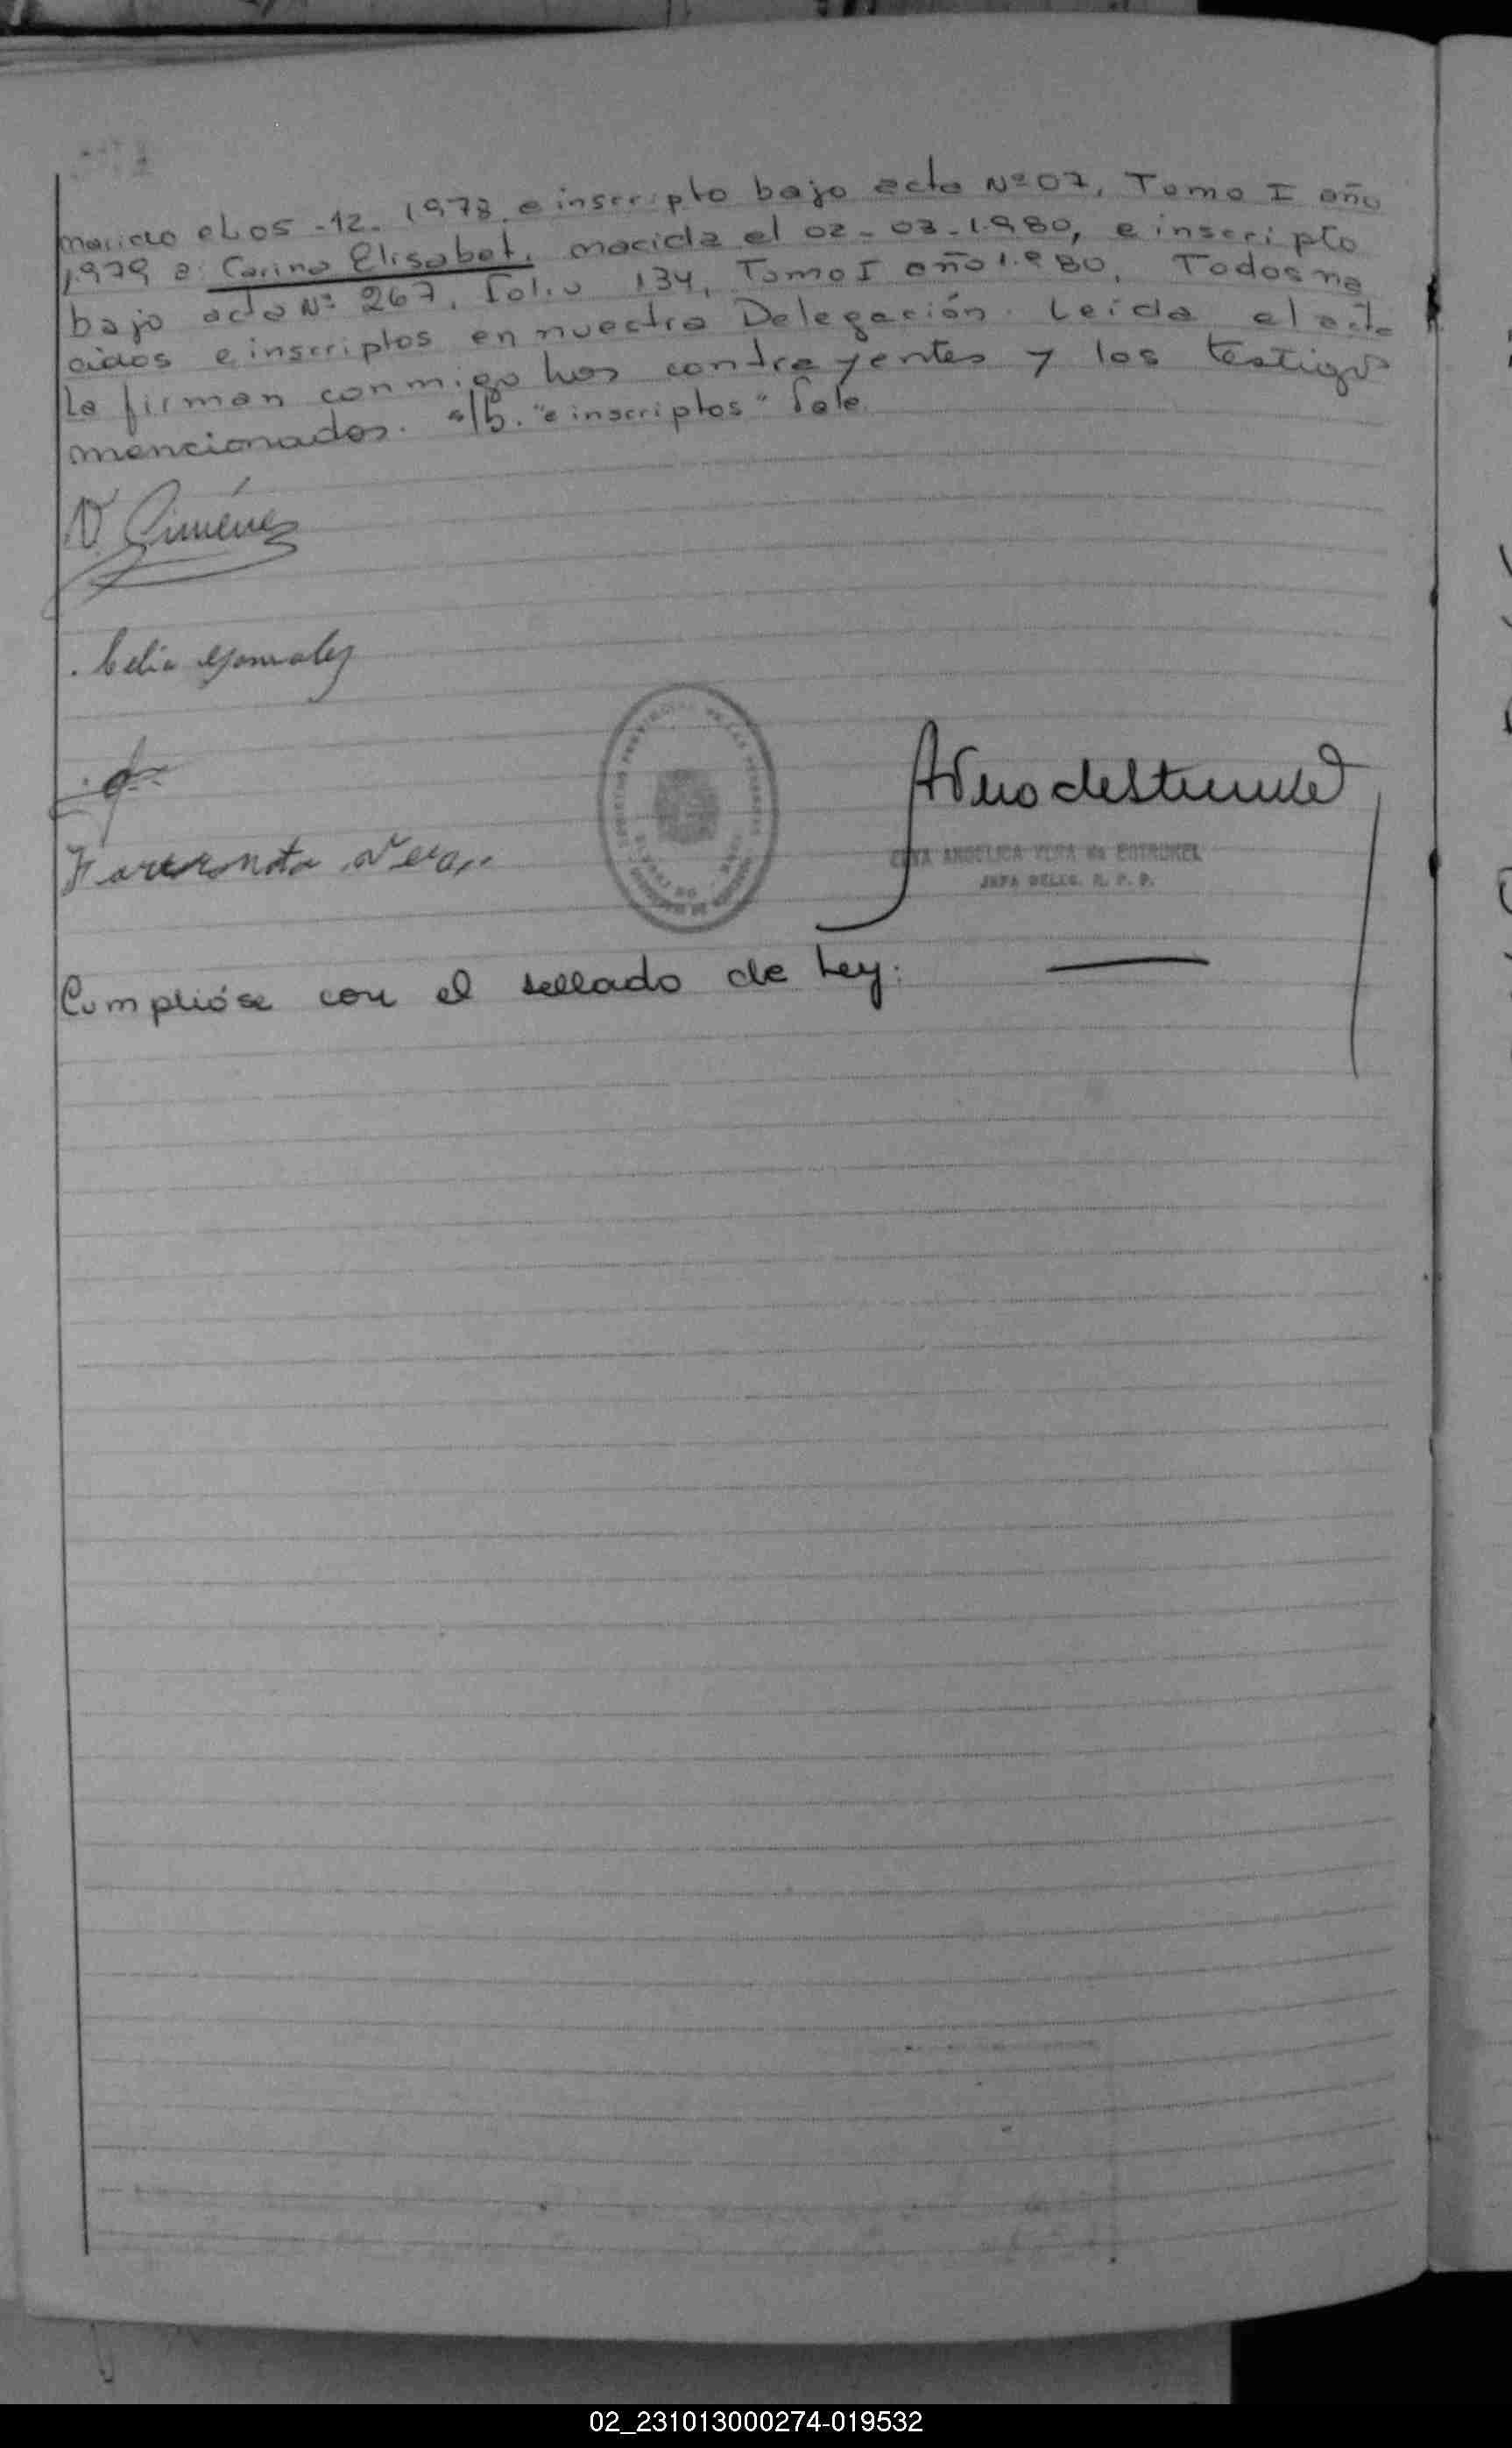 nacido el 05-12-1978 e inscripto bajo acta Nº 07, Tomo I año
1.979 a: Carina Elisabet, nacida el 02-03-1.980, e inscripto
bajo acta Nº 267, Folio 134, Tomo I año 1.980, Todos na
cidos e inscriptos en nuestra Delegación. Leída el acta
la firman conmigo los contrayentes y los testigos
mencionados. s/b. "e inscriptos" Vale.
N. Giménez
Celia Gonzalez
Vera
ANGELICA VERA de
JEFA DELEG. R. P. P.
Cumplióse con el sellado de Ley.
02_231013000274-019532